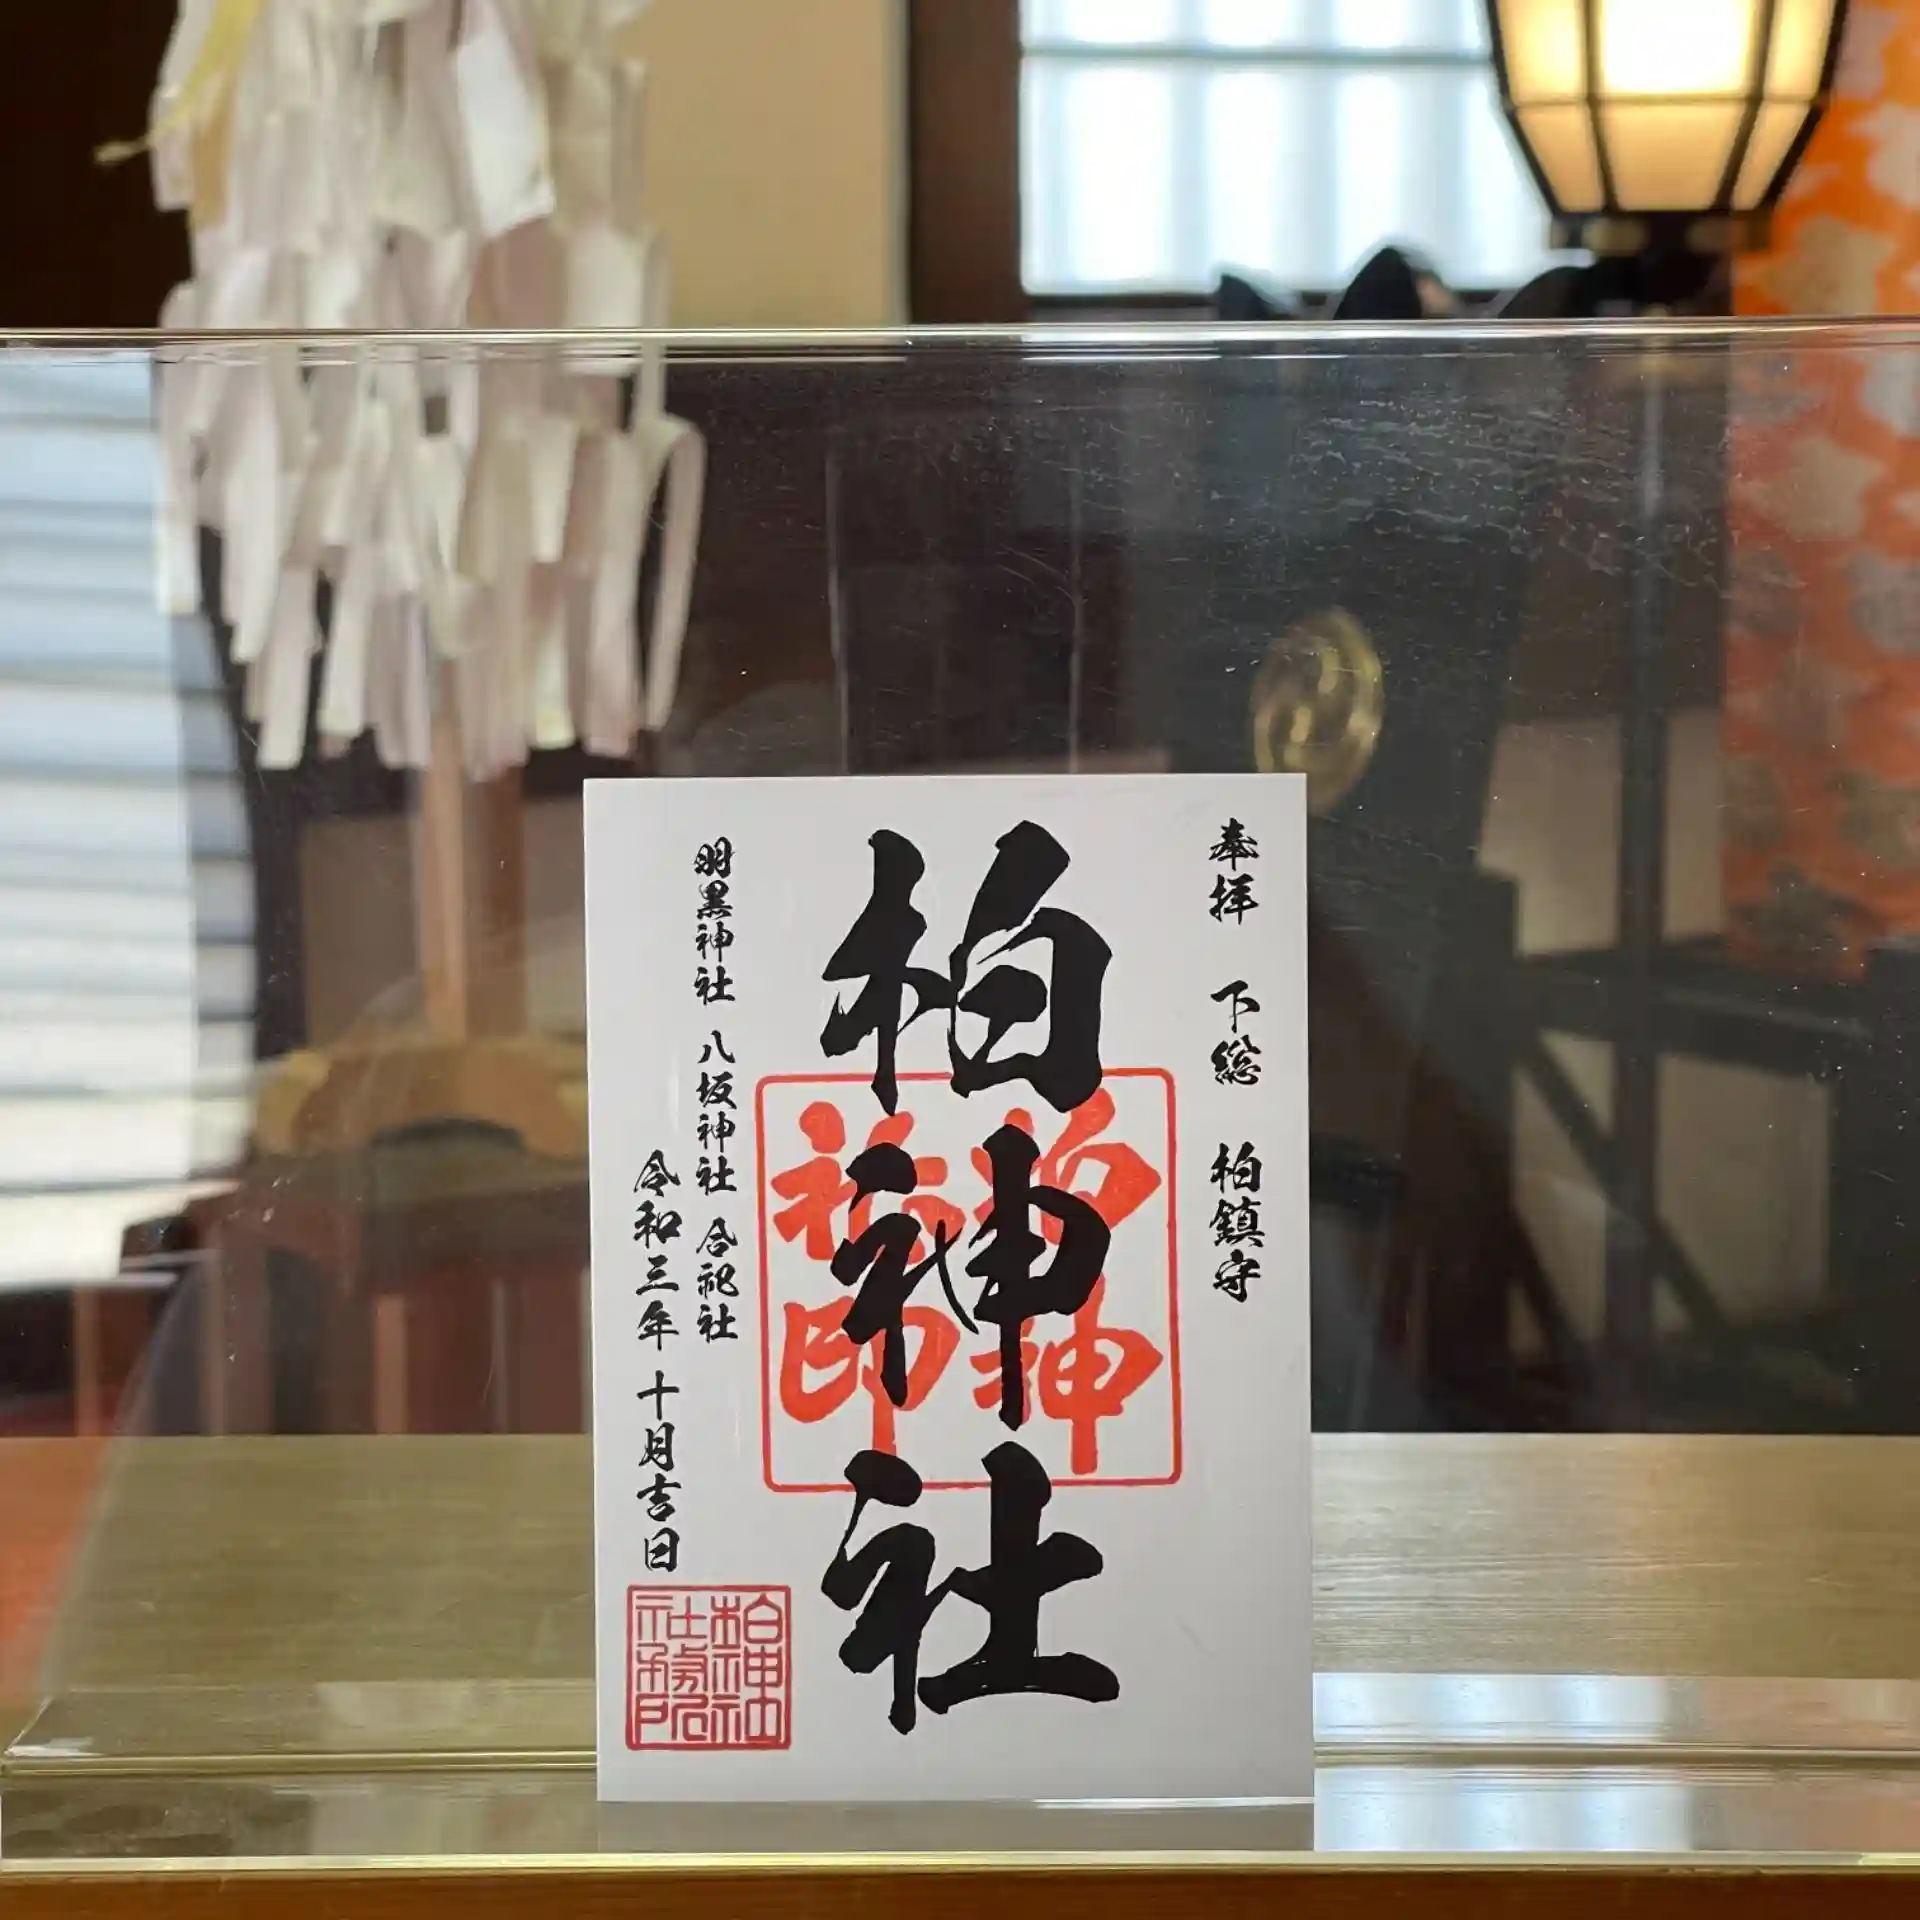 奉拝 下総 柏鎮守
柏神社
柏神社印
羽黒神社 八坂神社 合祀社
令和三年 十月吉日
柏神社社務所